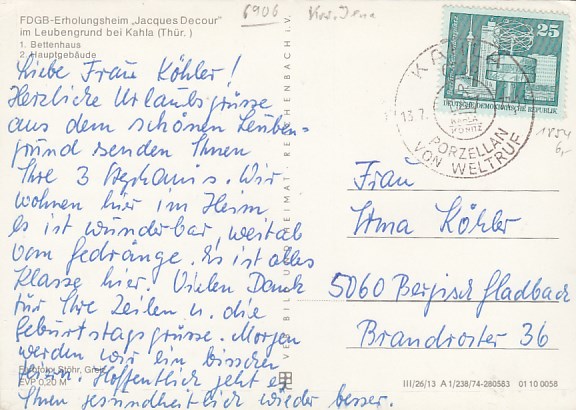 FDGB-Erholungsheim „Jacques Decour"
im Leubengrund bei Kahla (Thür.)
1. Bettenhaus
2. Hauptgebäude
6906
Krs. Jena
Liebe Frau Köhler!
Herzliche Urlaubsgrüsse
aus dem schönen Leuben-
grund senden Ihnen
Ihre 3 Stephanis. Wir
wohnen hier im Heim
es ist wunderbar, weitab
vom Gedränge. Es ist alles
Klasse hier. Vielen Dank
für Ihre Zeilen u. die
Geburtstagsgrüsse. Morgen
werden wir ein bisschen
feiern. Hoffentlich geht es
Ihnen gesundheitlich wieder besser.
Stöhr, Greiz
EVP 0,20 M
VEB BILD UND HEIMAT REICHENBACH i. V.
25
DEUTSCHE DEMOKRATISCHE REPUBLIK
KAHLA
13.7.
PORZELLAN
VON WELTRUF
1854
6,-
Frau
Irma Köhler
5060 Bergisch Gladbach
Brandroster 36
III/26/13 A 1/238/74-280583 01 10 0058